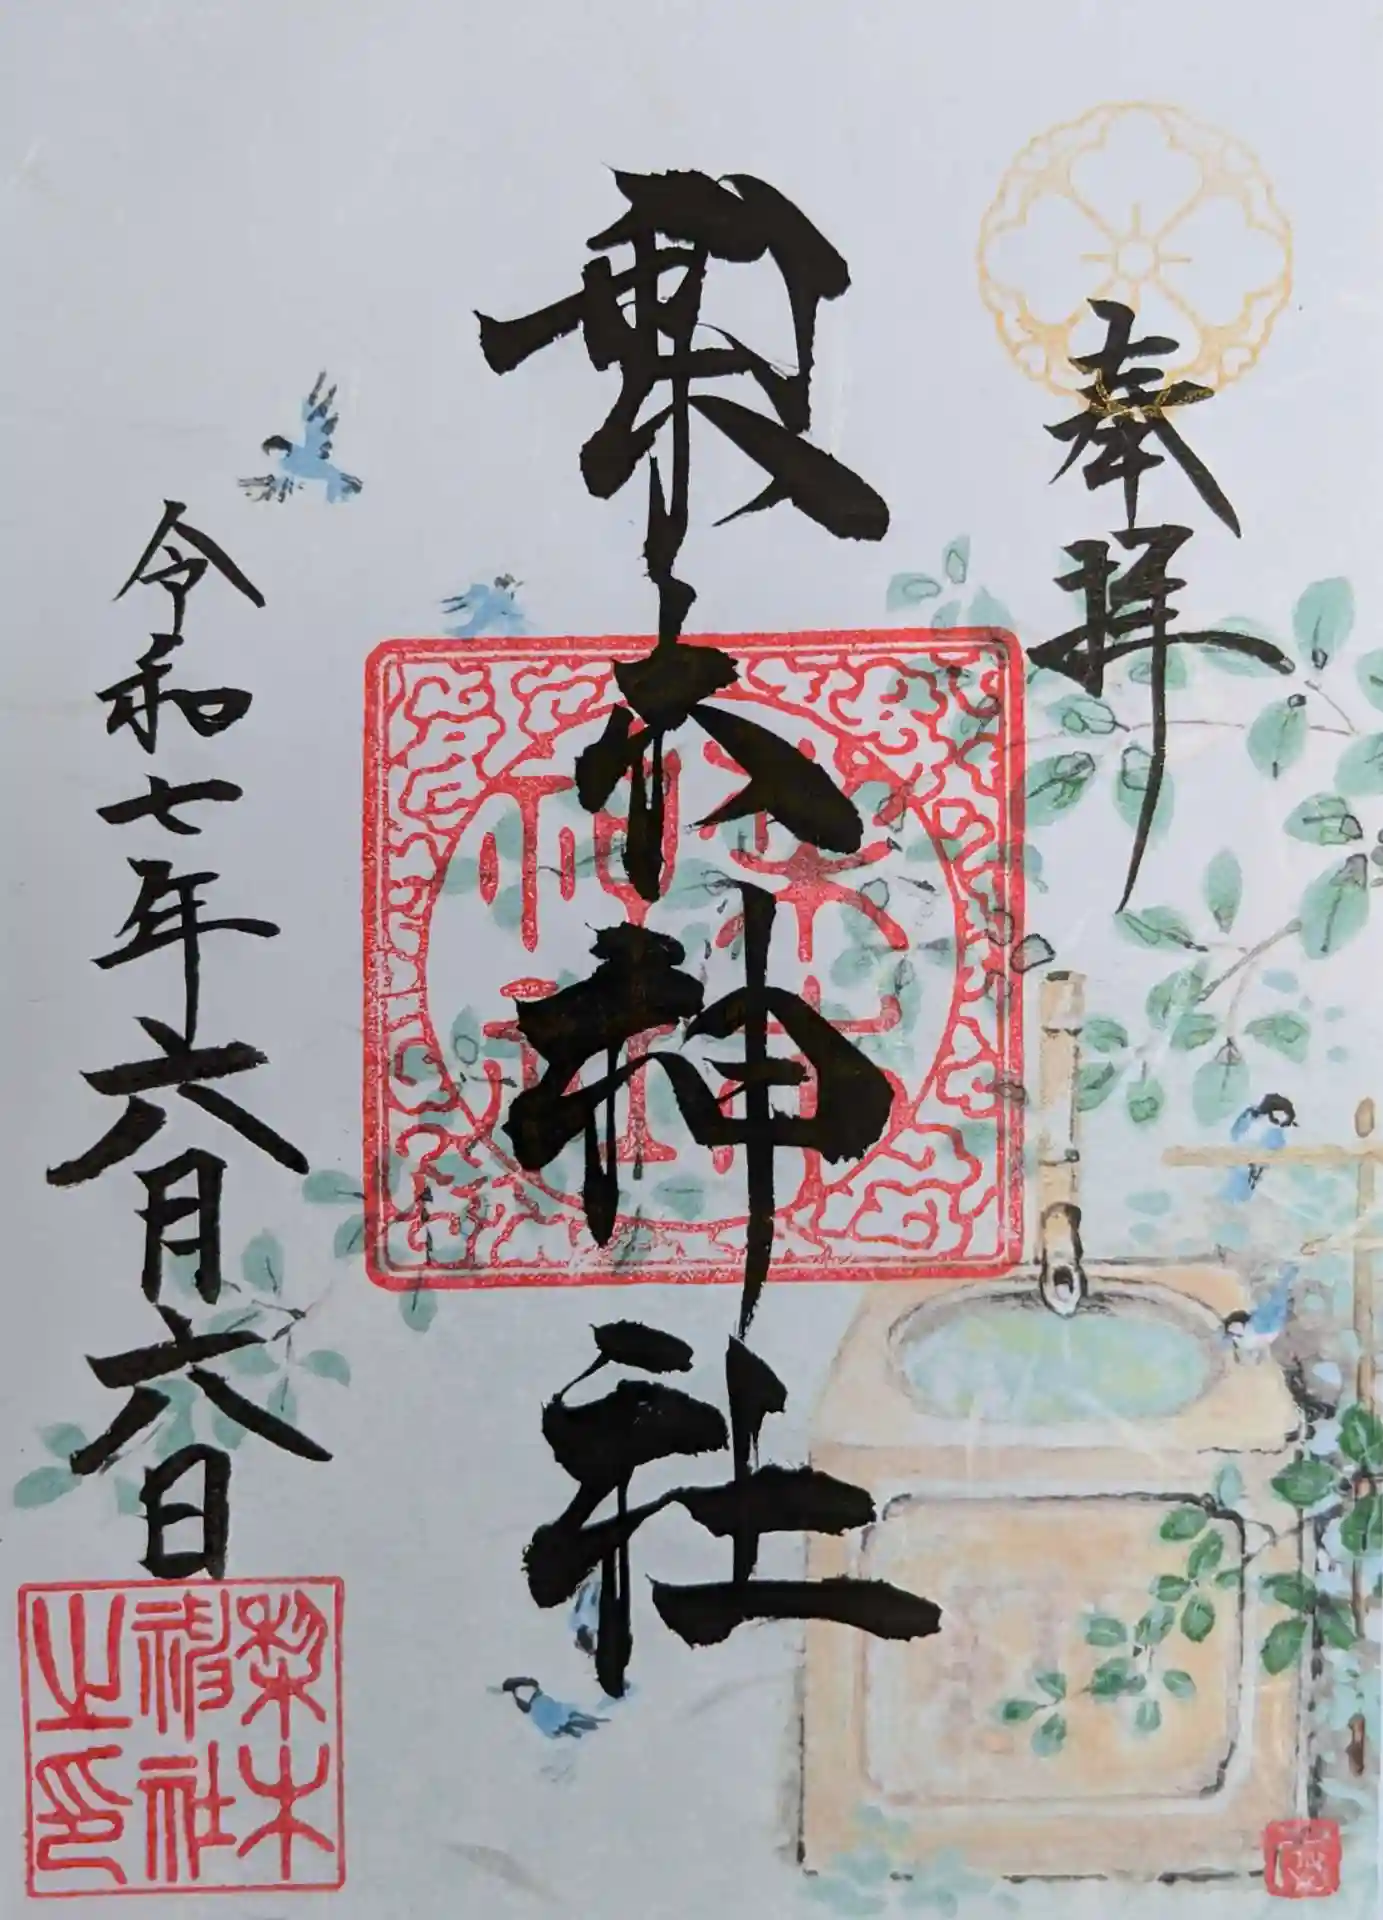 奉拝
梨木神社
令和七年六月六日
梨木
神社
之印